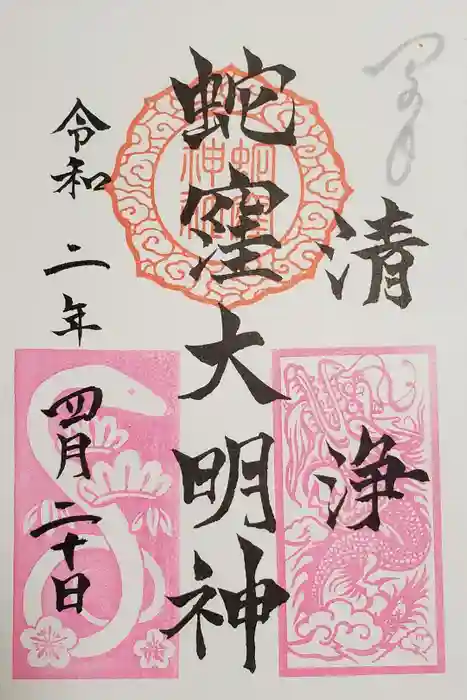 清浄
蛇窪大明神
令和二年四月二十日
蛇窪神社